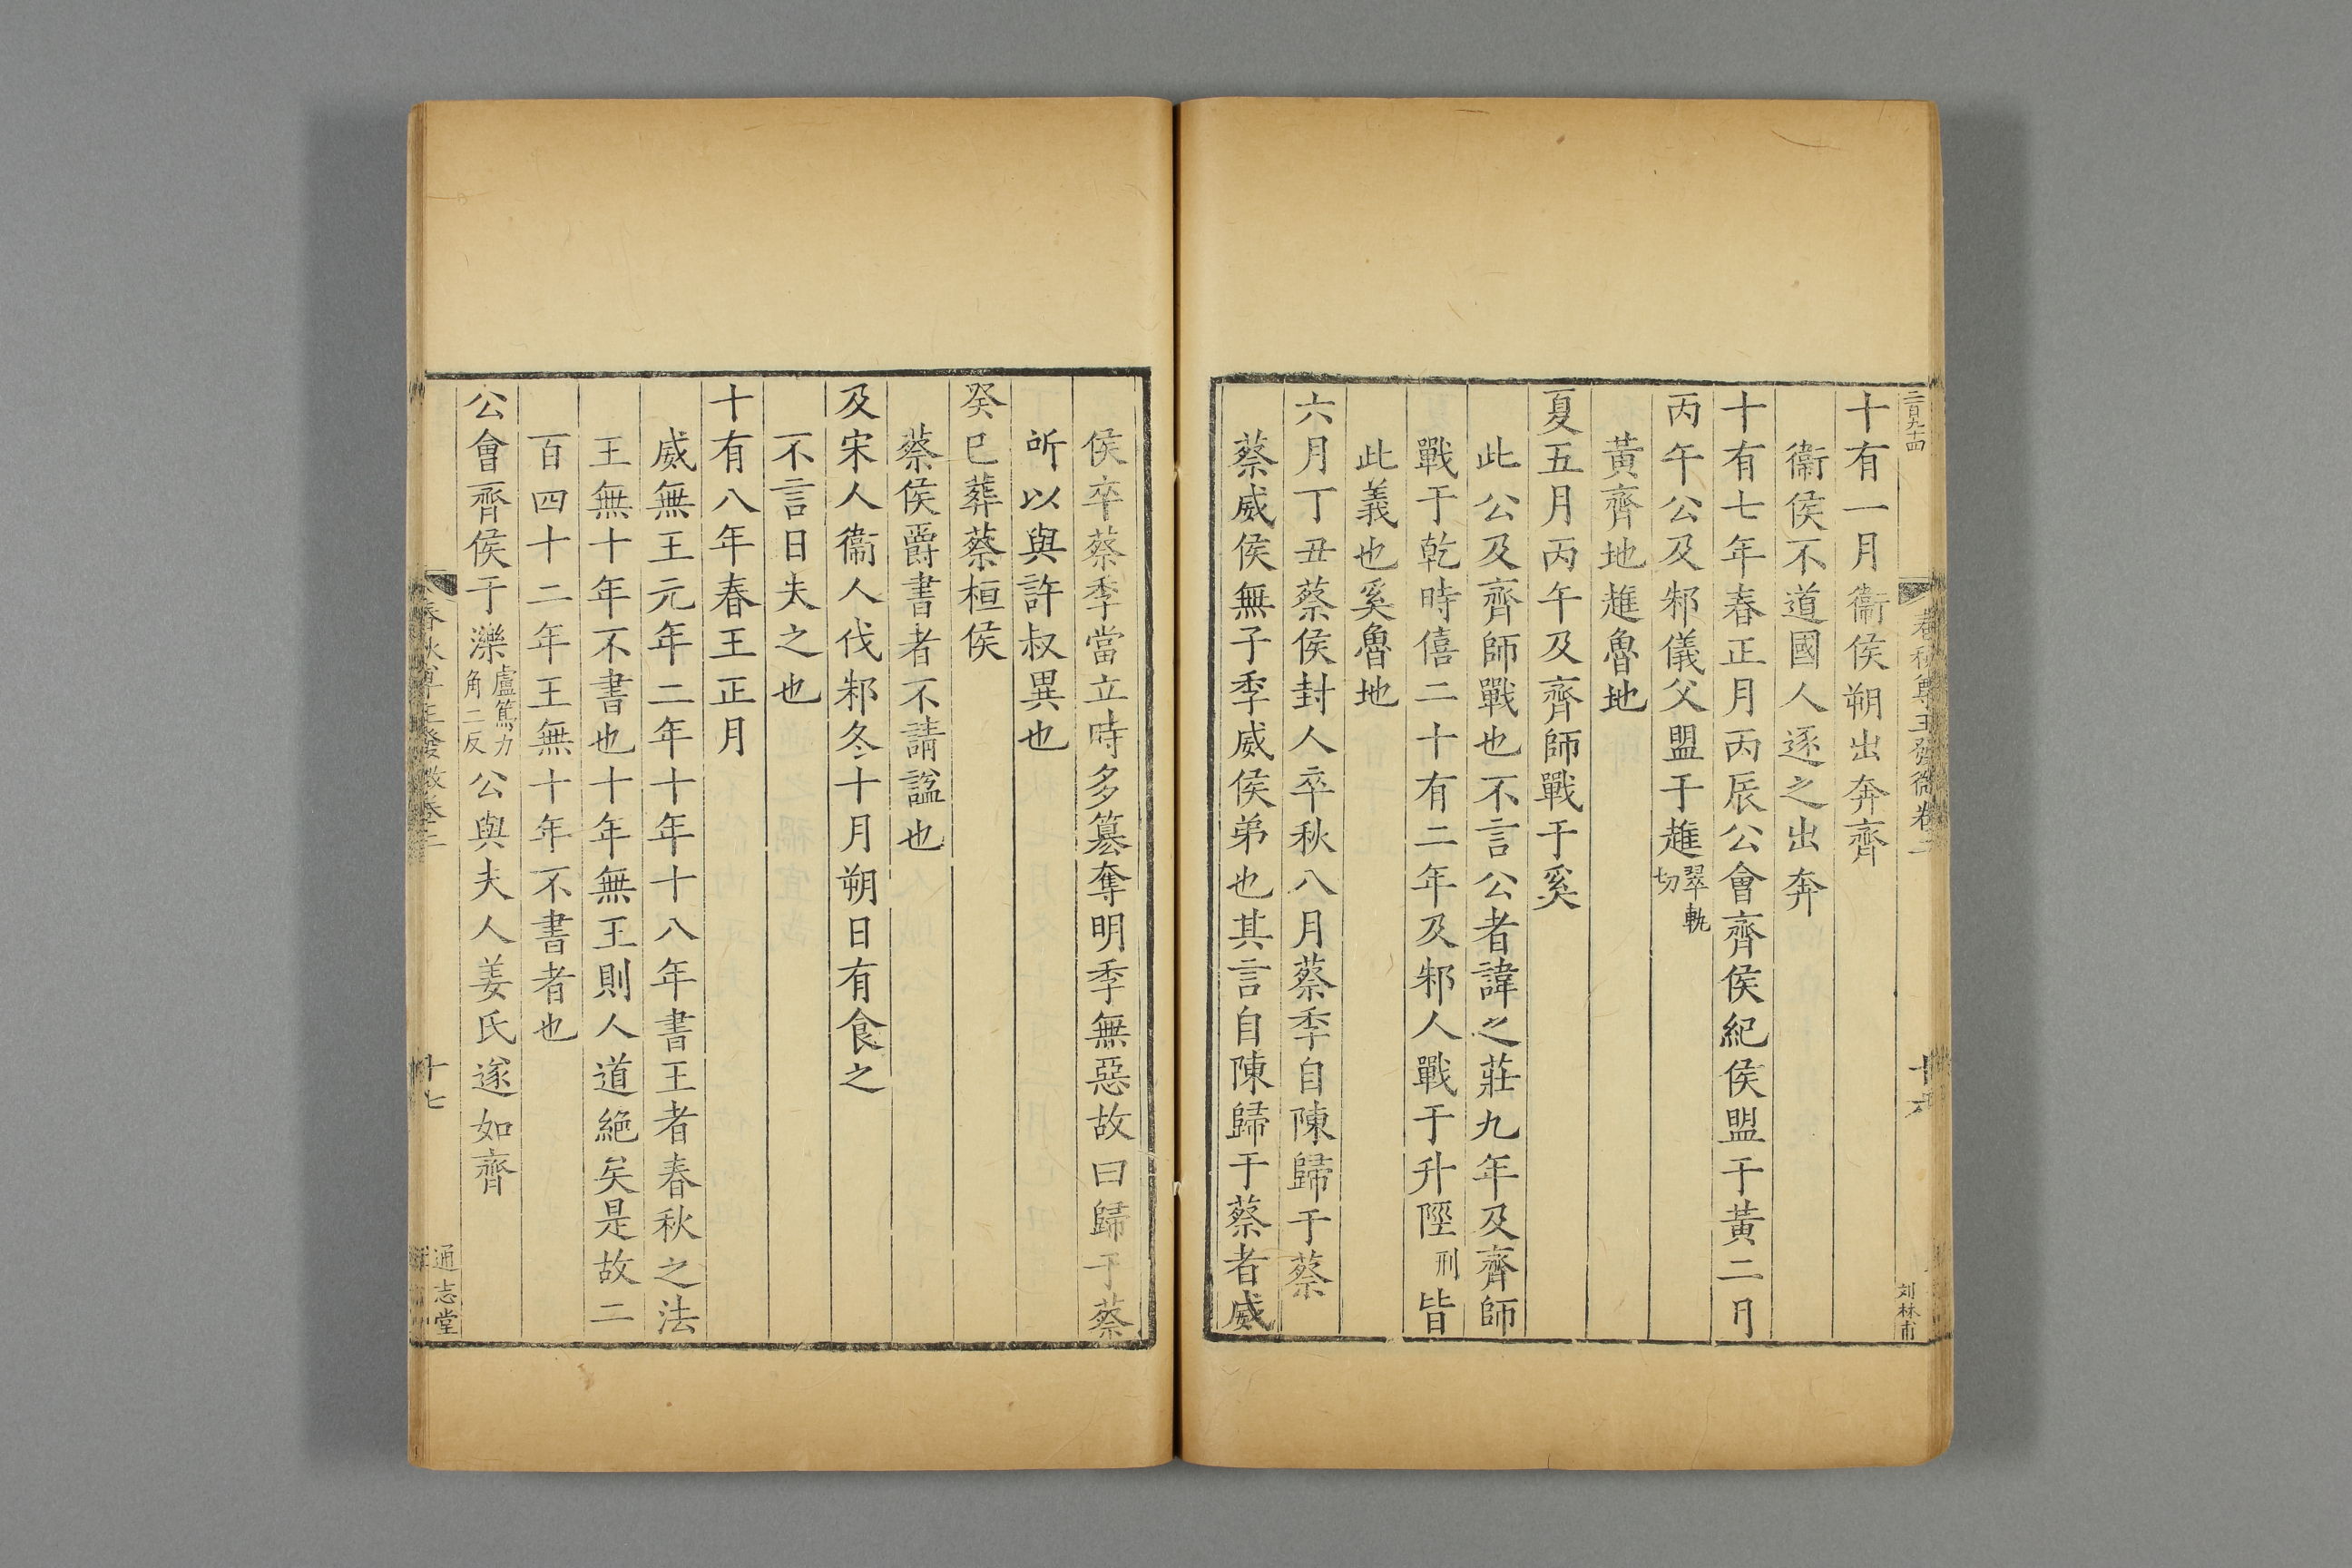 二百九十四
春秋尊王發微卷二
十六
刘林甫
十有一月衞侯朔出奔齊
衞侯不道國人逐之出奔
十有七年春正月丙辰公會齊侯紀侯盟于黃二月
丙午公及邾儀父盟于趡翠軌切
黃齊地趡魯地
夏五月丙午及齊師戰于奚
此公及齊師戰也不言公者諱之莊九年及齊師
戰于乾時僖二十有二年及邾人戰于升陘刑皆
此義也奚魯地
六月丁丑蔡侯封人卒秋八月蔡季自陳歸于蔡
蔡威侯無子季威侯弟也其言自陳歸于蔡者威
侯卒蔡季當立時多簒奪明季無惡故曰歸于蔡
所以與許叔異也
癸巳葬蔡桓侯
蔡侯爵書者不請諡也
及宋人衞人伐邾冬十月朔日有食之
不言日失之也
十有八年春王正月
威無王元年二年十年十八年書王者春秋之法
王無十年不書也十年無王則人道絕矣是故二
百四十二年王無十年不書者也
公會齊侯于濼盧篤力角二反公與夫人姜氏遂如齊
春秋尊王發微卷二
十七
通志堂